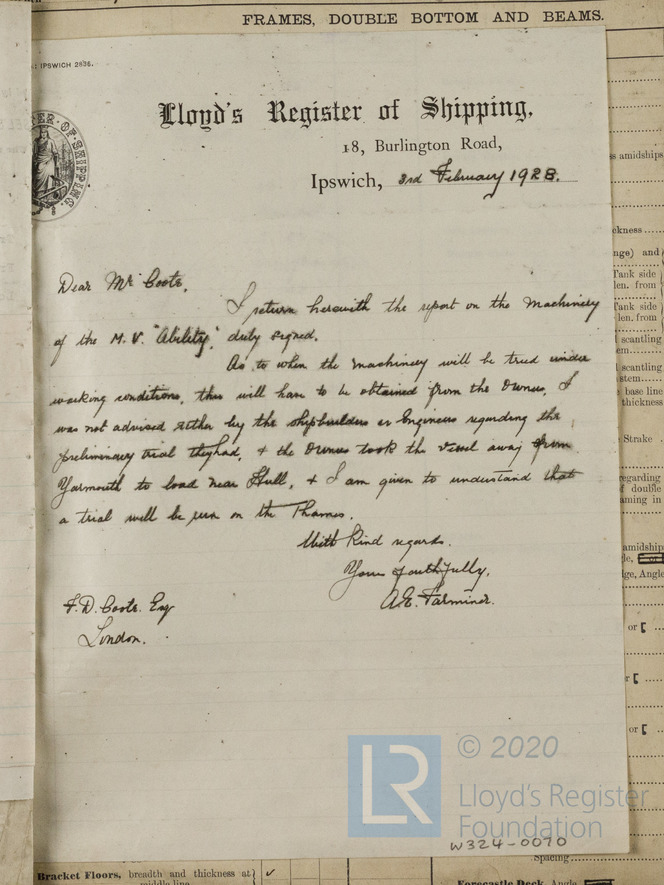 FRAMES, DOUBLE BOTTOM AND BEAMS.
IPSWICH 2836.
Lloyd's Register of Shipping,
18, Burlington Road,
Ipswich, 3rd February 1928.
Dear Mr Coote,
I return herewith the report on the machinery
of the M.V. "Ability," duly signed.
As to when the machinery will be tried under
working conditions, this will have to be obtained from the Owners, I
was not advised either by the shipbuilders or Engineers regarding the
preliminary trial they had, & the Owners took the vessel away from
Yarmouth to load near Hull, & I am given to understand that
a trial will be run on the Thames.
With kind regards.
Yours faithfully,
A.E. Farminer.
F.D. Coote. Esq
London.
© 2020
LR
Lloyd's Register
Foundation
W324-0070
Spacing
Bracket Floors, breadth and thickness at
middle line
Forecastle Deck, Angle
amidships
nge) and
Tank side
len. from
Tank side
len. from
scantling
scantling
base line
thickness
Strake
regarding
double
aming in
amidship
ge, Angle
or [
r [
or [